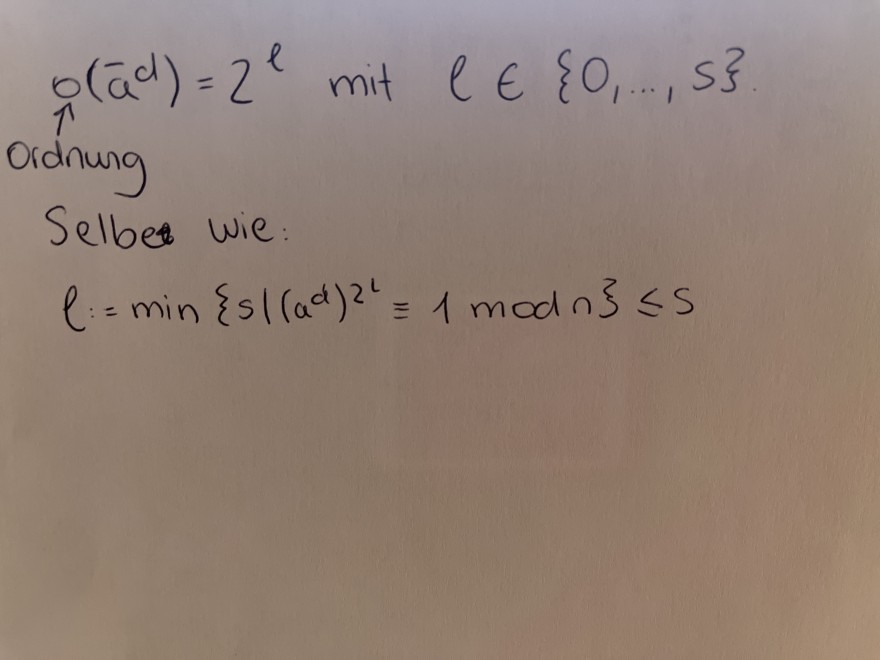 o(ā^d) = 2^ℓ mit ℓ ∈ {0,...,s}.
↑
Ordnung
Selbe wie:
ℓ := min {s|(a^d)^2^l ≡ 1 mod n} ≤ s